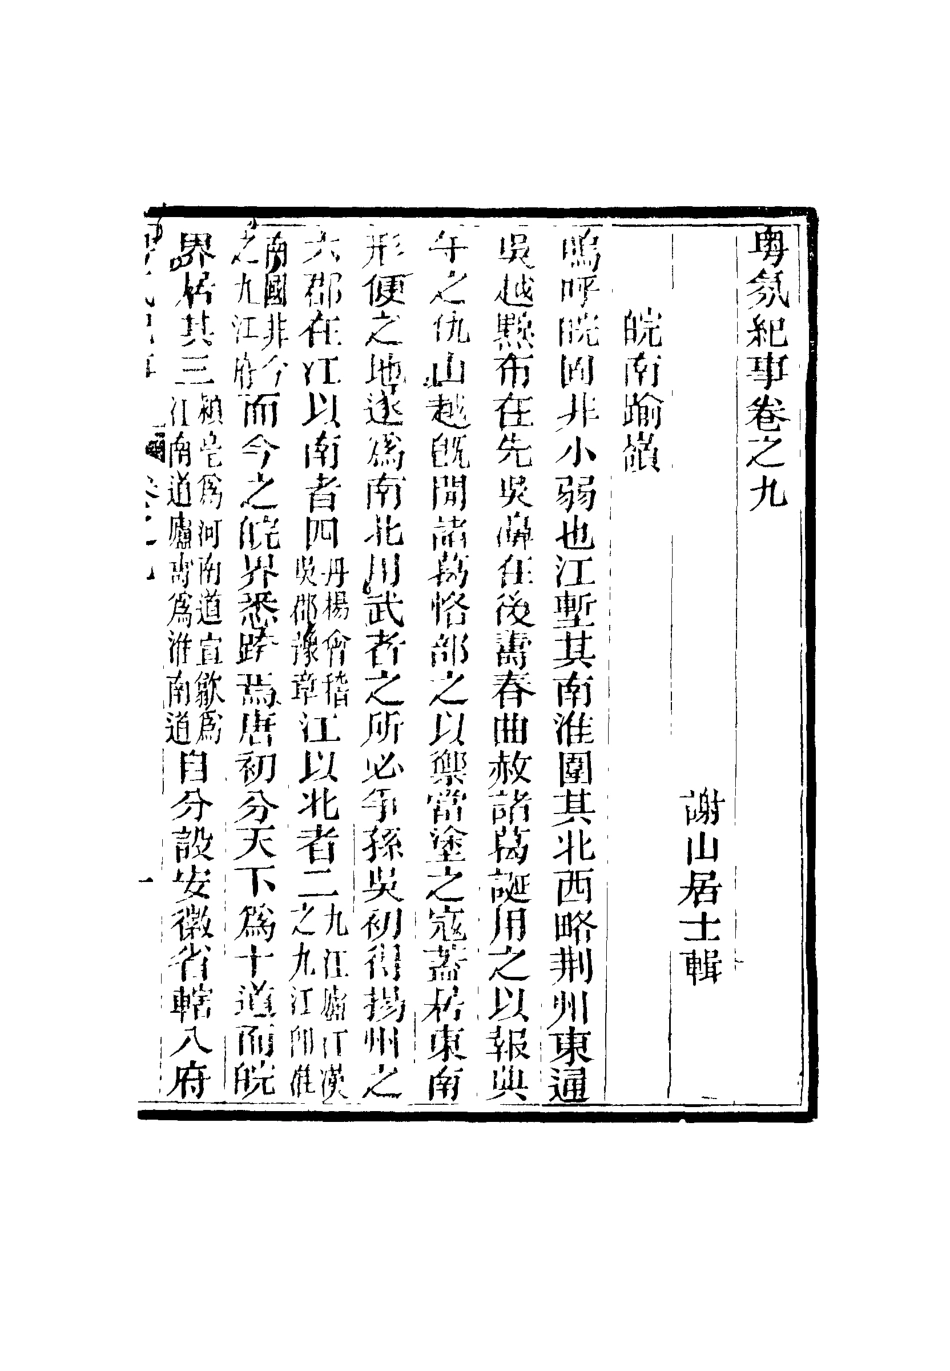 粤氛紀事卷之九
謝山居士輯
皖南踰嶺
嗚呼皖固非小弱也江塹其南淮圍其北西略荆州東通
吳越黥布在先吳濞在後壽春曲赦諸葛誕用之以報典
午之仇山越旣開諸葛恪部之以禦當塗之寇蓋居東南
形便之地遂爲南北用武者之所必爭孫吳初得揚州之
六郡在江以南者四丹楊會稽吳郡豫章江以北者二九江廬江漢之九江卽淮
南國非今之九江府而今之皖界悉跨焉唐初分天下爲十道而皖
界居其三潁亳爲河南道宣歙爲江南道廬壽爲淮南道自分設安徽省轄八府
卷之九
一